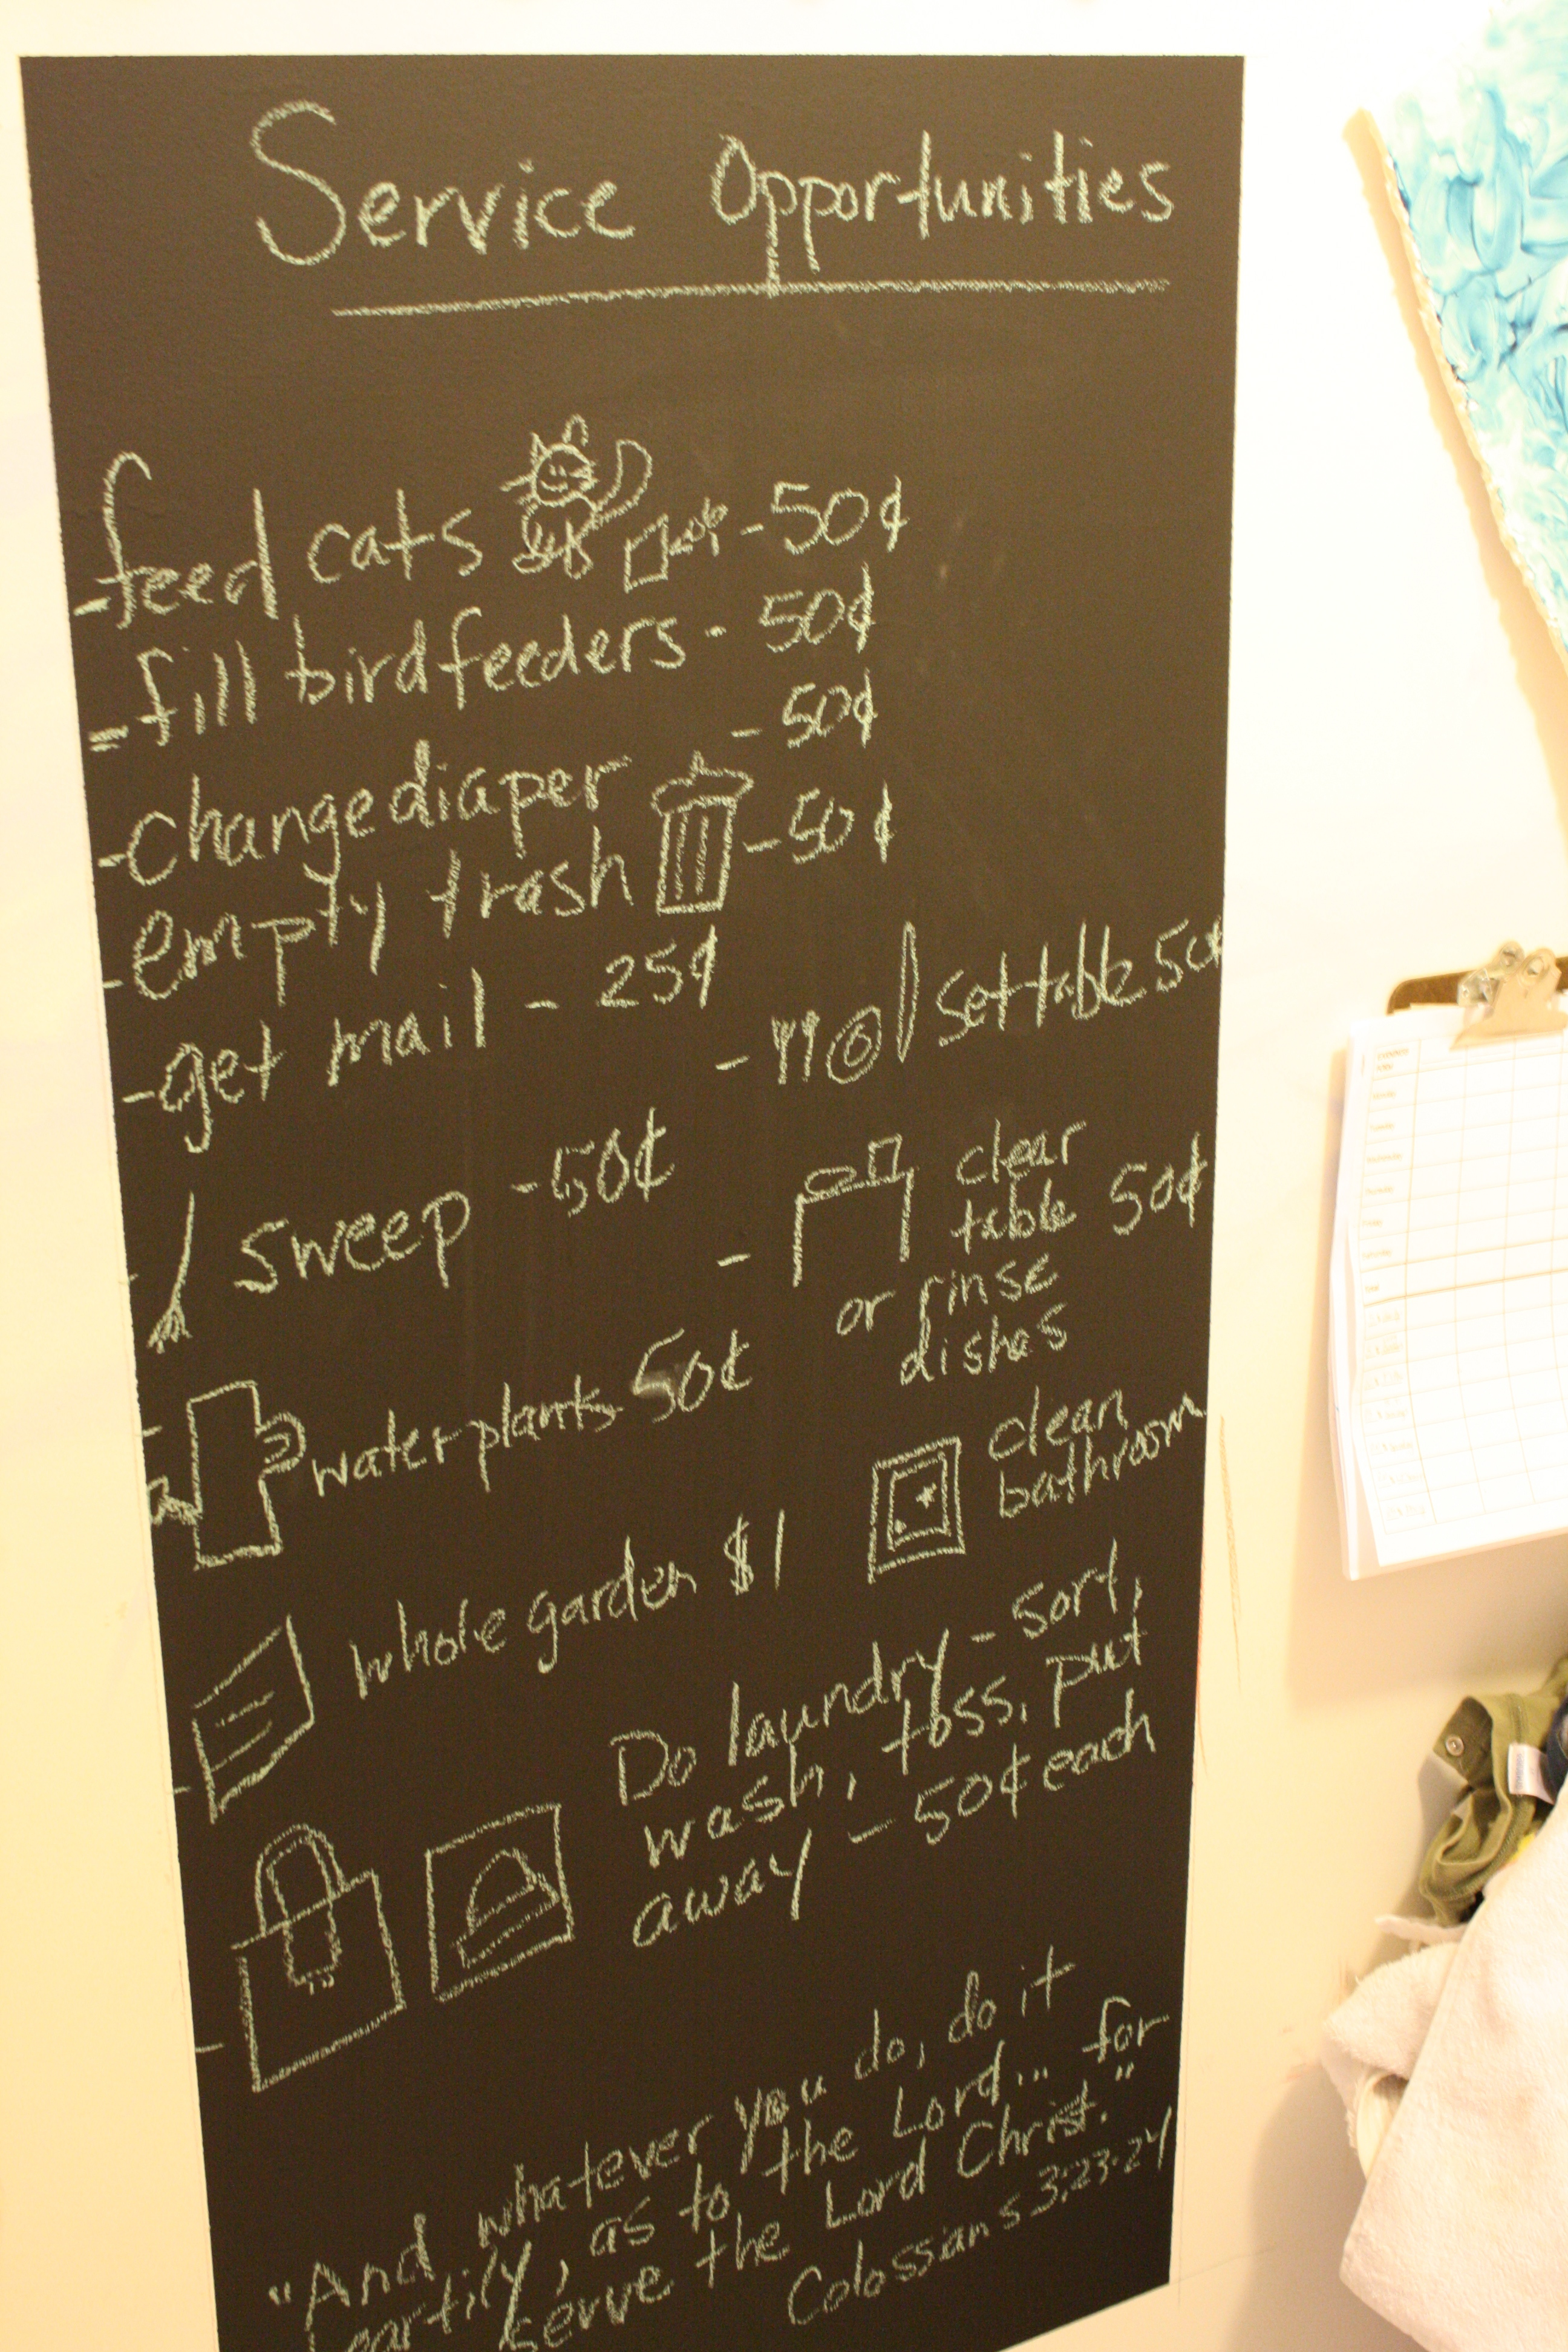 Service Opportunities
-feed cats -50¢
-fill birdfeeders - 50¢
-change diaper - 50¢
-empty trash -50¢
-get mail - 25¢
- set table 50¢
sweep -50¢
- clear
table 50¢
or rinse
dishes
water plants 50¢
clean
bathroom
whole garden $1
Do laundry - sort,
wash, toss, put
away - 50¢ each
"And whatever you do, do it
heartily, as to the Lord... for
serve the Lord Christ."
Colossians 3:23-24